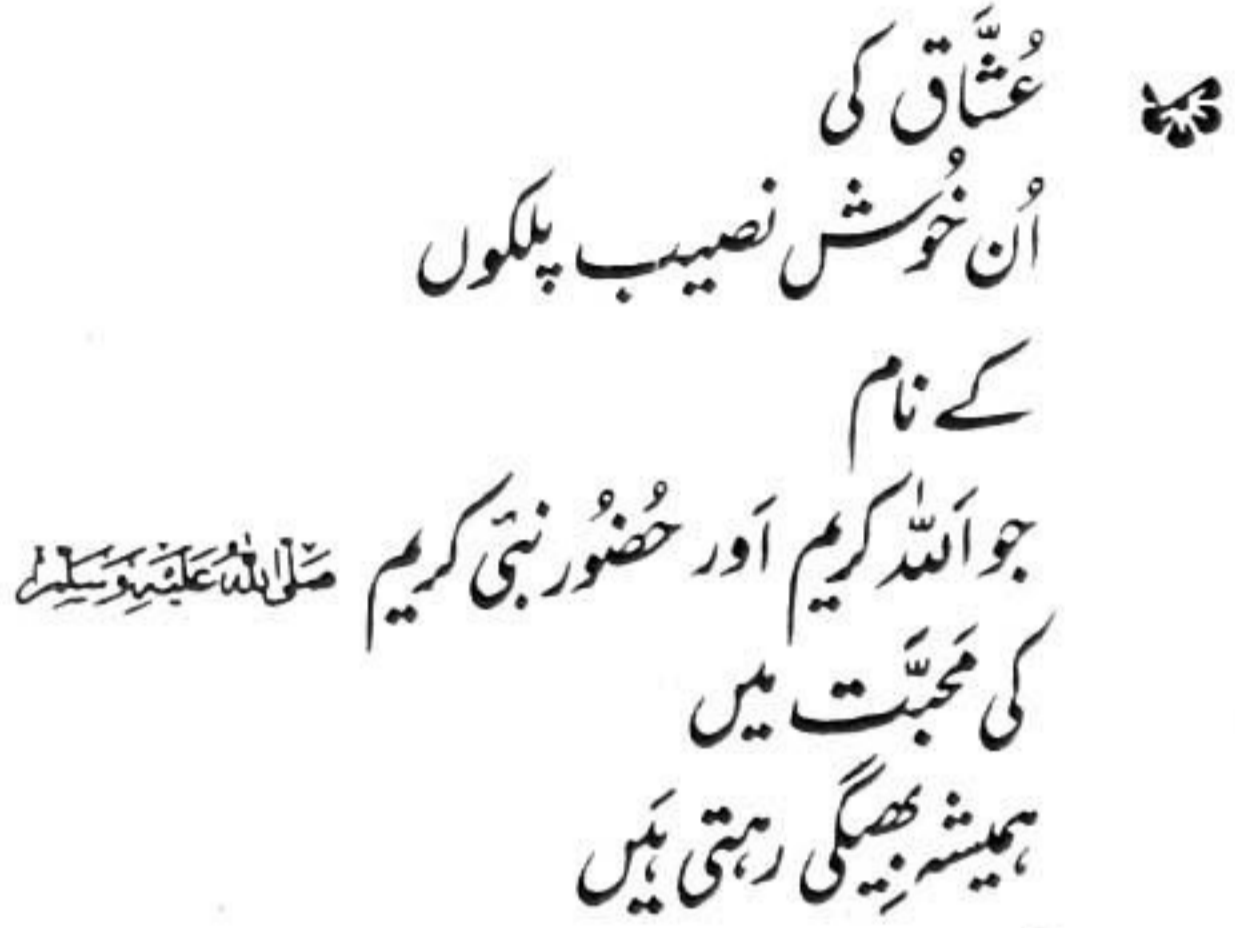 عُشَّاق کی
اُن خُوش نصیب پلکوں
کے نام
جو اَللہ کریم اَور حُضُور نبیّ کریم صَلَّی اللہُ عَلَیْہِ وَسَلَّم
کی مَحبَّت میں
ہمیشہ بھِیگی رہتی ہَیں